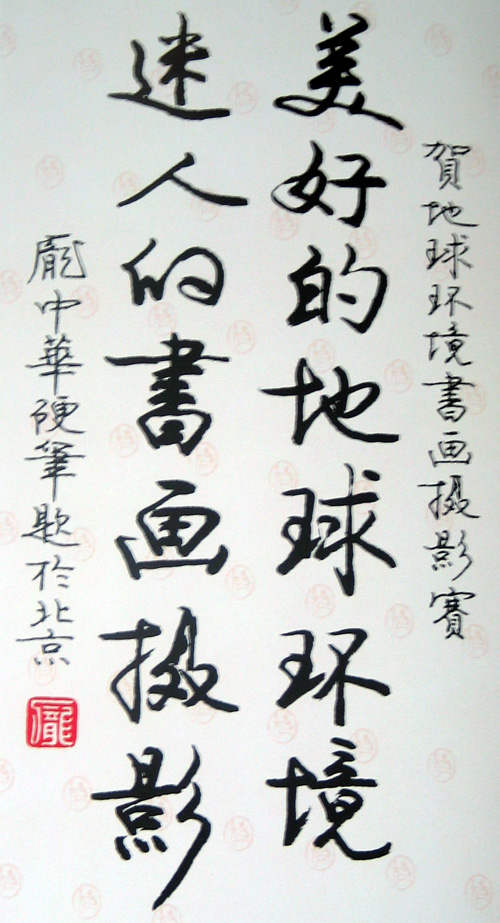 賀地球环境書画摄影賽
美好的地球环境
迷人的書画摄影
龐中華硬筆题於北京